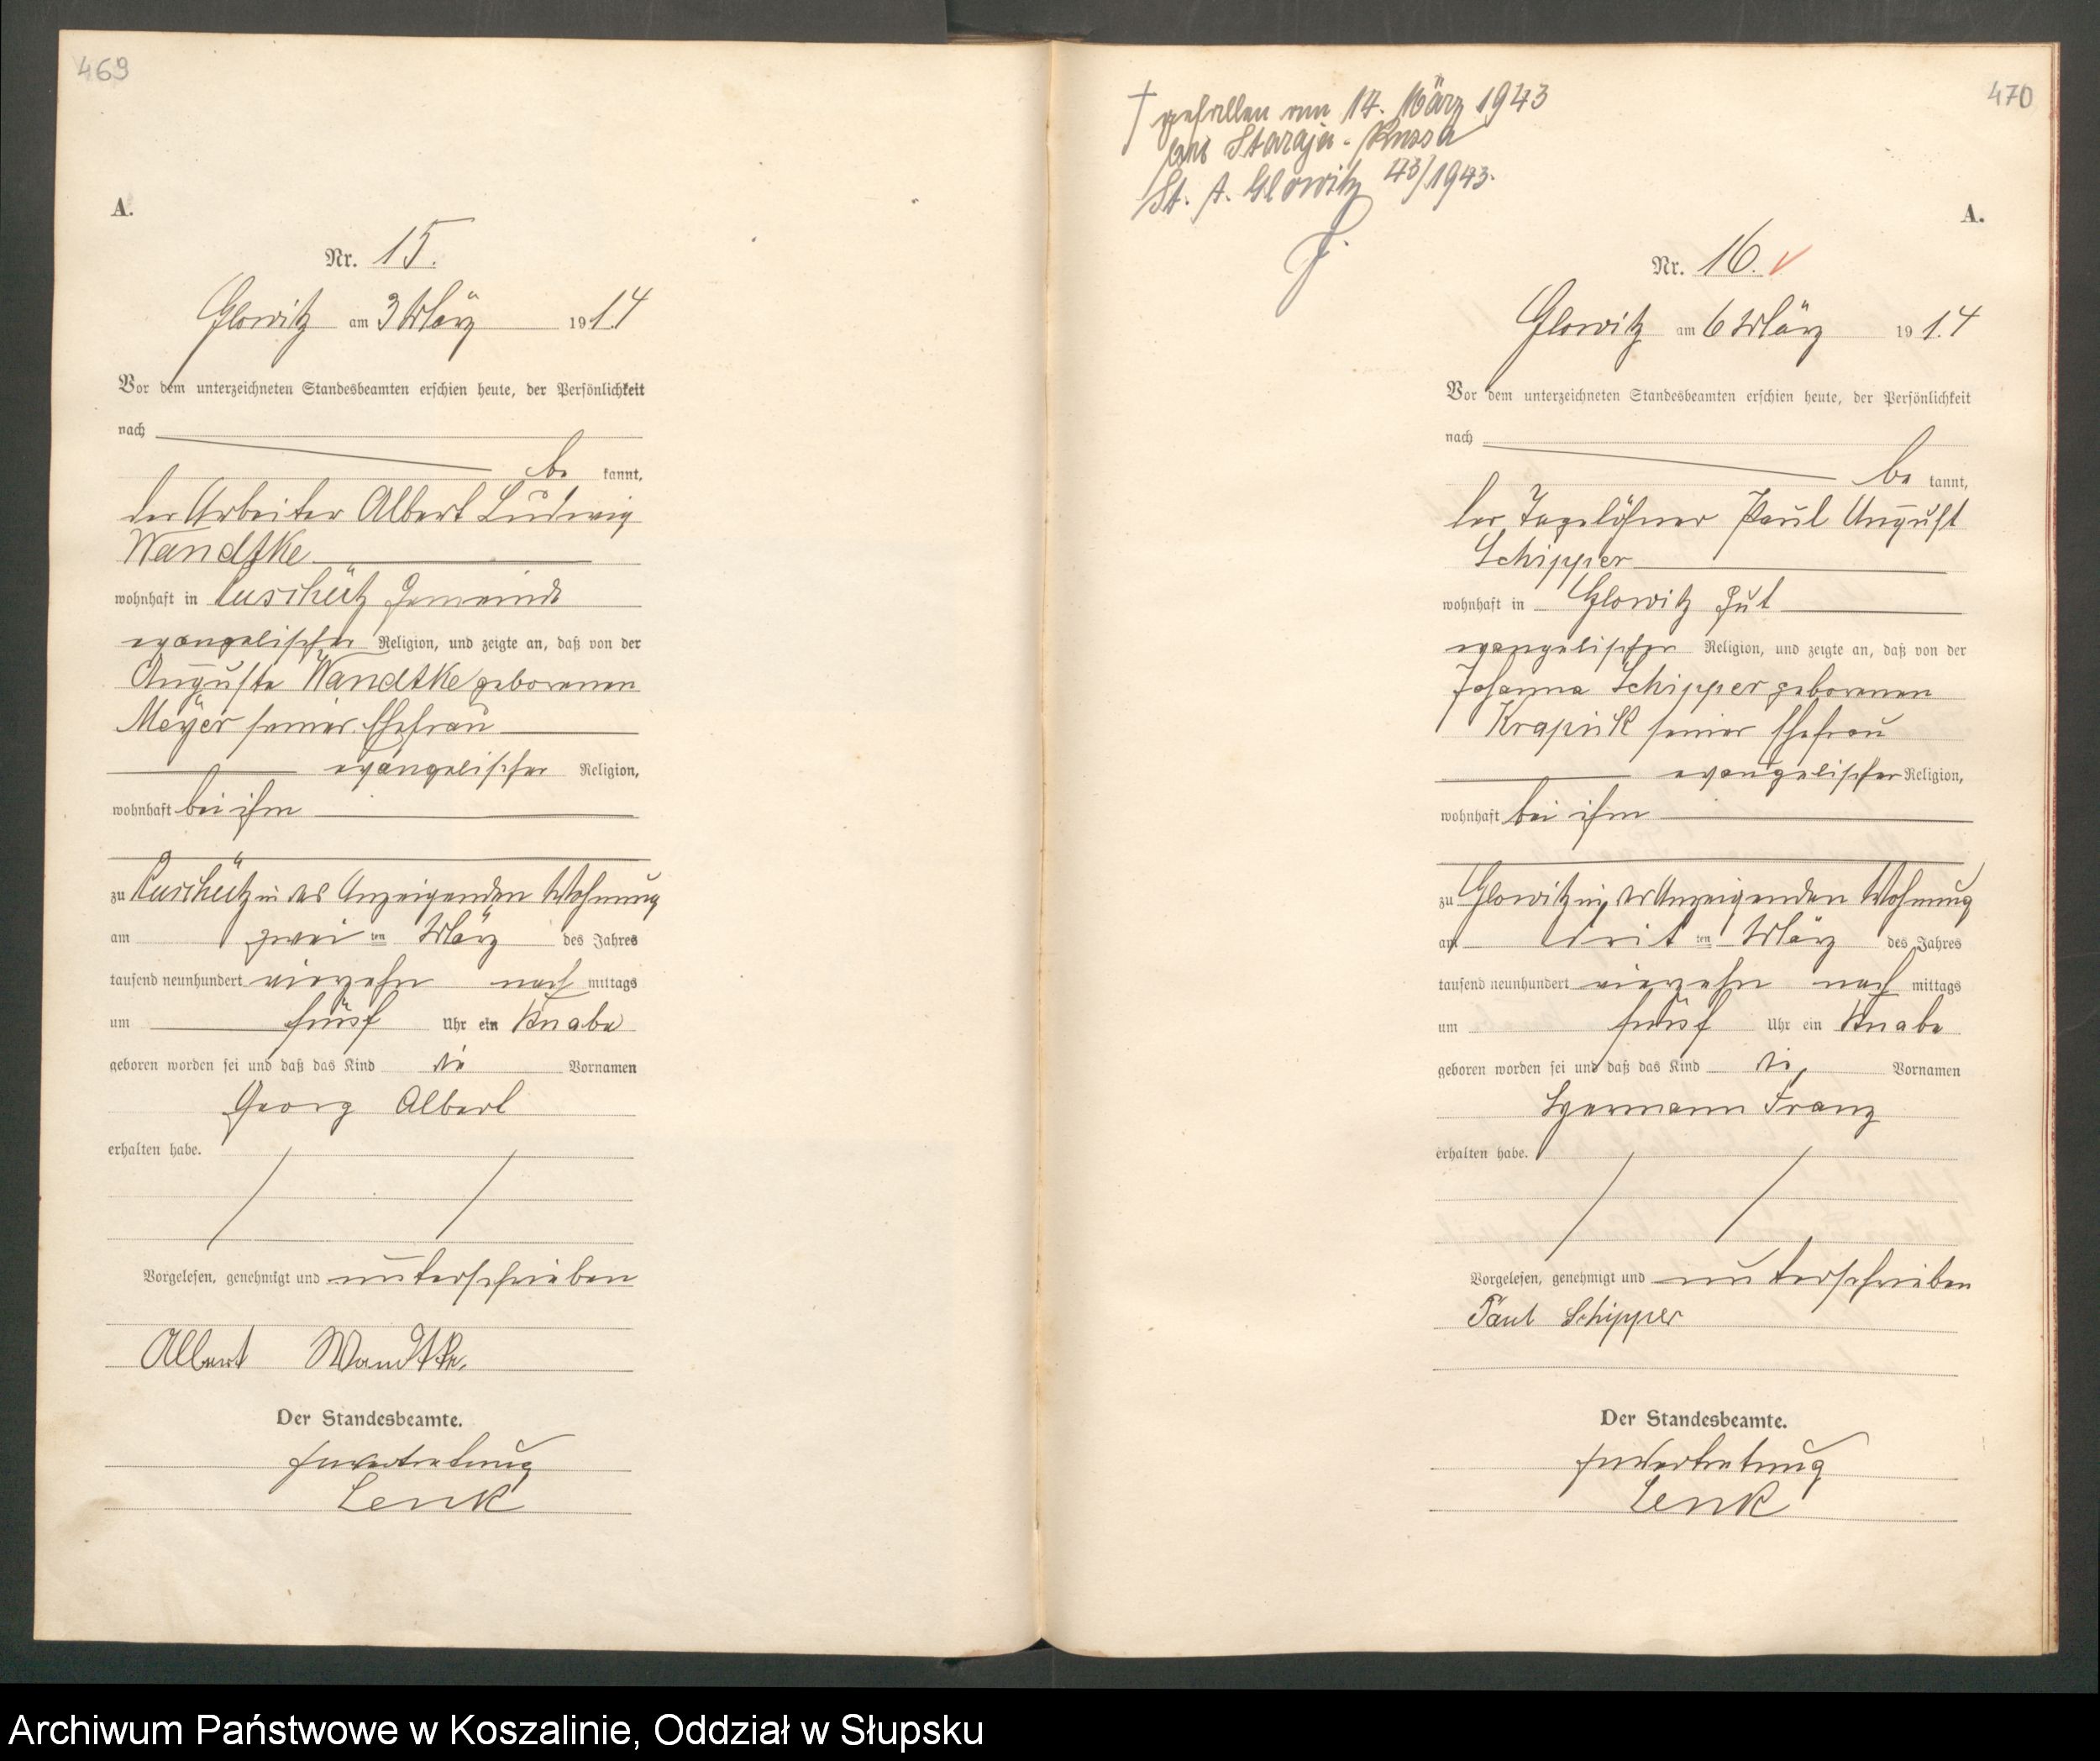 469
A.
Nr. 15.
Glowitz am 3 März 1914
Vor dem unterzeichneten Standesbeamten erschien heute, der Persönlichkeit
nach
be kannt,
der Arbeiter Albert Ludwig
Wandtke
wohnhaft in Ruschütz Gemeinde
evangelischer Religion, und zeigte an, daß von der
Auguste Wandtke geborenen
Meyer seiner Ehefrau
evangelischer Religion,
wohnhaft bei ihm
zu Ruschütz in des Anzeigenden Wohnung
am zwei ten März des Jahres
tausend neunhundert vierzehn nach mittags
um fünf Uhr ein Knabe
geboren worden sei und daß das Kind die Vornamen
Georg Albert
erhalten habe.
Vorgelesen, genehmigt und unterschrieben
Albert Wandtke.
Der Standesbeamte.
In Vertretung
Lenk
470
† gefallen am 14. März 1943
Staraja-Russa
St. A. Glowitz 43/1943.
A.
Nr. 16.
Glowitz am 6 März 1914
Vor dem unterzeichneten Standesbeamten erschien heute, der Persönlichkeit
nach
be kannt,
der Tagelöhner Paul August
Schipper
wohnhaft in Glowitz Gut
evangelischer Religion, und zeigte an, daß von der
Johanna Schipper geborenen
Krapink seiner Ehefrau
evangelischer Religion,
wohnhaft bei ihm
zu Glowitz in des Anzeigenden Wohnung
am drit ten März des Jahres
tausend neunhundert vierzehn nach mittags
um fünf Uhr ein Knabe
geboren worden sei und daß das Kind die Vornamen
Hermann Franz
erhalten habe.
Vorgelesen, genehmigt und unterschrieben
Paul Schipper
Der Standesbeamte.
In Vertretung
Lenk
Archiwum Państwowe w Koszalinie, Oddział w Słupsku